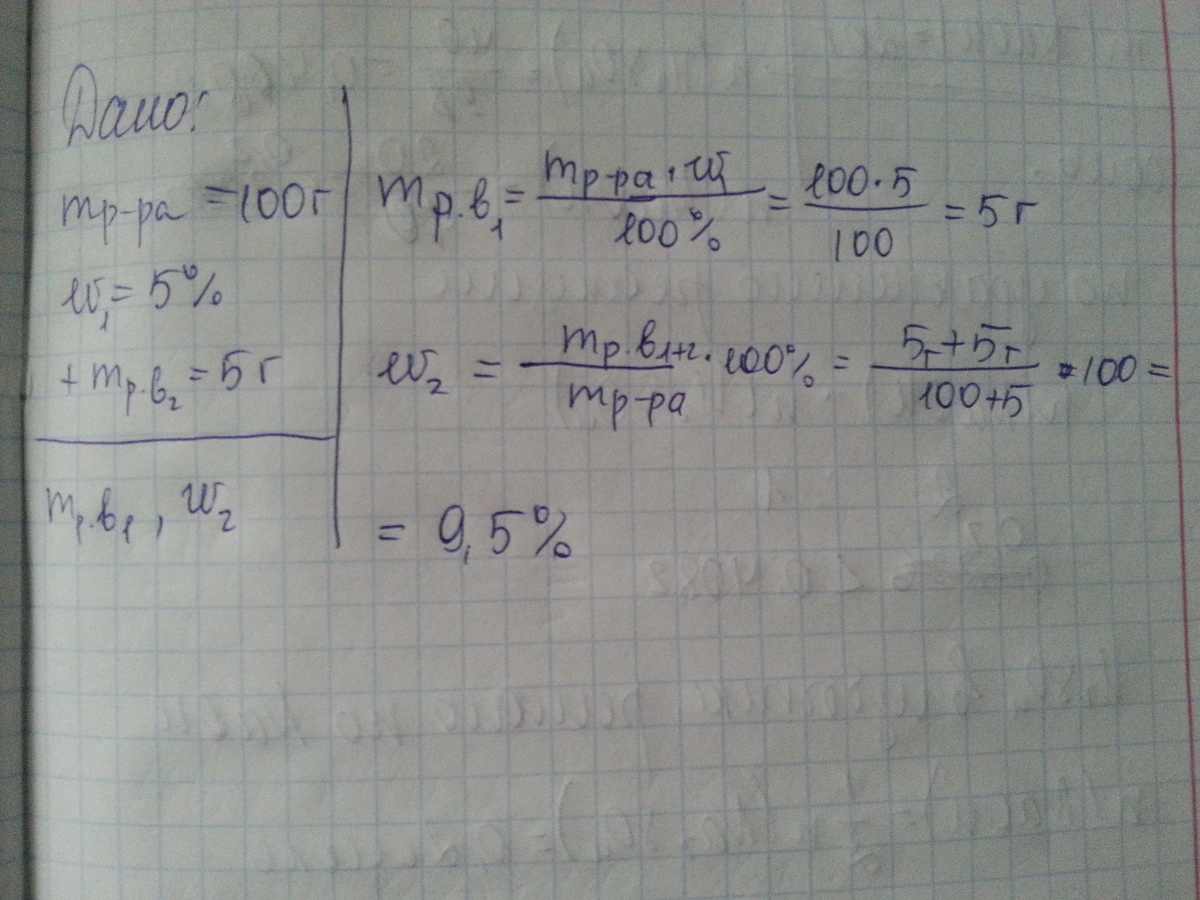 Дано:
mр-ра = 100г
w₁ = 5%
+ mр.в₂ = 5 г
mр.в₁, w₂
mр.в₁ = mр-ра · w₁ / 100% = 100 · 5 / 100 = 5 г
w₂ = mр.в₁+₂ · 100% / mр-ра = 5г + 5г / 100+5 · 100 =
= 9,5%